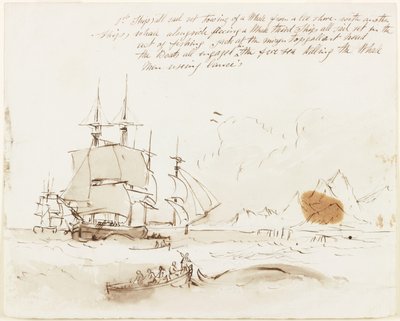 1st Ship all sail set towing of a Whale from a lee shore with another
Ships whale alongside fleecing a Whale third Ship all sail set in the
act of fishing jack at the mizen topgallant head
the Boats all engaged the five sea killing the Whale
there